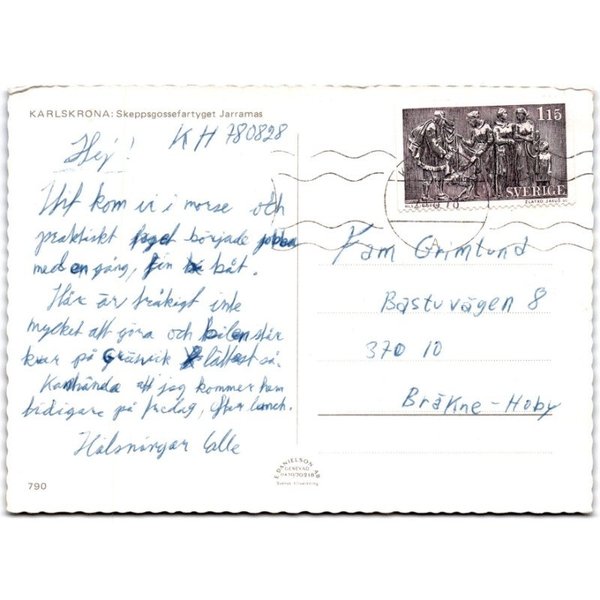 KARLSKRONA: Skeppsgossefartyget Jarramas
KH 780828
Hej!
Hit kom vi i morse och
praktiskt började jobba
med en gång, fin båt.
Här är tråkigt inte
mycket att göra och bilen står
kvar på Gräsvik lättast så.
Kanhända att jag kommer hem
tidigare på fredag, efter lunch.
Hälsningar Calle
1.15
SVERIGE
Fam Grimlund
Bastuvägen 8
370 10
Bräkne-Hoby
E. DANIELSON AB
790